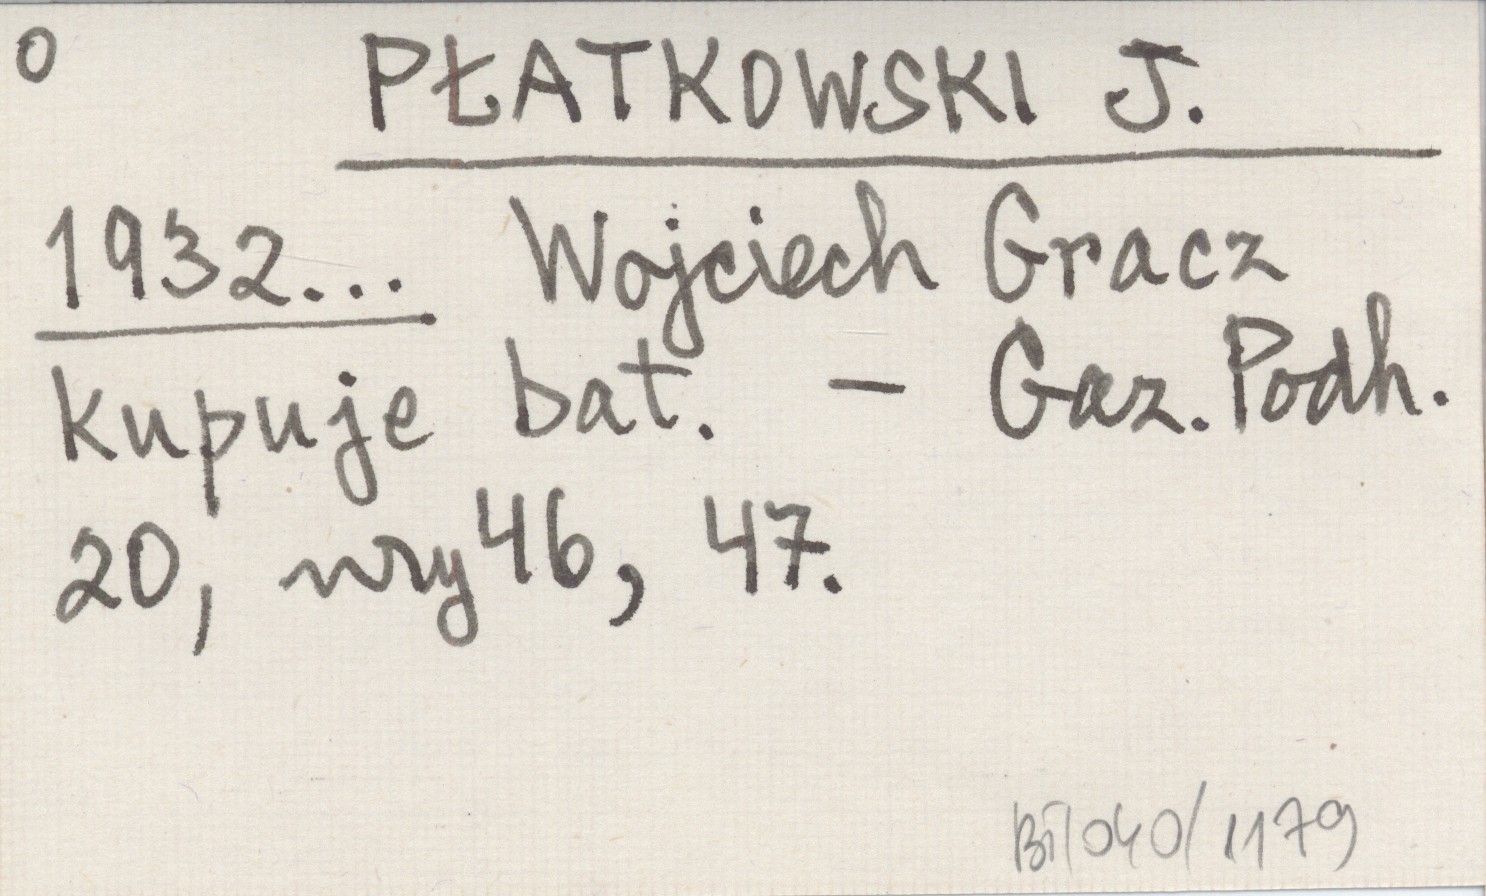 0 PŁATKOWSKI J.
1932... Wojciech Gracz
kupuje bat. - Gaz. Podh.
20, nry 46, 47.
BT/040/1179